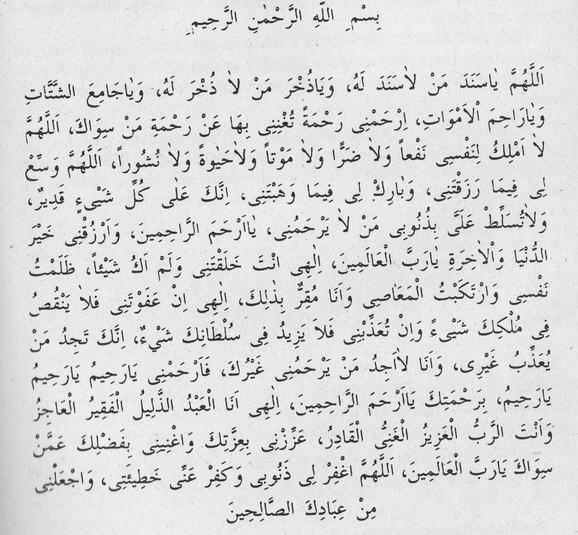 بِسْمِ اللّٰهِ الرَّحْمٰنِ الرَّحِيمِ
اَللّٰهُمَّ يَاسَنَدَ مَنْ لاَسَنَدَ لَهُ، وَيَاذُخْرَ مَنْ لاَ ذُخْرَ لَهُ، وَيَاجَامِعَ الشَّتَّاتِ
وَيَارَاحِمَ الْاَمْوَاتِ، اِرْحَمْنِى رَحْمَةً تُغْنِنِى بِهَا عَنْ رَحْمَةِ مَنْ سِوَاكَ، اَللّٰهُمَّ
لاَ اَمْلِكُ لِنَفْسِى نَفْعاً وَلاَ ضَرًّا وَلاَ مَوْتاً وَلاَحَيٰوةً وَلاَ نُشُوراً، اَللّٰهُمَّ وَسِّعْ
لِى فِيمَا رَزَقْتَنِى، وَبَارِكْ لِى فِيمَا وَهَبْتَنِى، اِنَّكَ عَلٰى كُلِّ شَيْىءٍ قَدِيرٌ،
وَلاَتُسَلِّطْ عَلَىَّ بِذُنُوبِى مَنْ لاَ يَرْحَمُنِى، يَااَرْحَمَ الرَّاحِمِينَ، وَارْزُقْنِى خَيْرَ
الدُّنْيَا وَالْاٰخِرَةِ يَارَبَّ الْعَالَمِينَ، اِلٰهِى اَنْتَ خَلَقْتَنِى وَلَمْ اَكُ شَيْئاً، ظَلَمْتُ
نَفْسِى وَارْتَكَبْتُ الْمَعَاصِى وَاَنَا مُقِرٌّ بِذٰلِكَ، اِلٰهِى اِنْ عَفَوْتَنِى فَلاَ يَنْقُصُ
فِى مُلْكِكَ شَيْىءٌ وَاِنْ تُعَذِّبْنِى فَلاَ يَزِيدُ فِى سُلْطَانِكَ شَيْءٌ، اِنَّكَ تَجِدُ مَنْ
يُعَذِّبُ غَيْرِى، وَاَنَا لاَاَجِدُ مَنْ يَرْحَمُنِى غَيْرُكَ، فَارْحَمْنِى يَارَحِيمُ يَارَحِيمُ
يَارَحِيمُ، بِرَحْمَتِكَ يَااَرْحَمَ الرَّاحِمِينَ، اِلٰهِى اَنَا الْعَبْدُ الذَّلِيلُ الْفَقِيرُ الْعَاجِزُ
وَاَنْتَ الرَّبُّ الْعَزِيزُ الْغَنِىُّ الْقَادِرُ، عَزِّزْنِى بِعِزَّتِكَ وَاغْنِينِى بِفَضْلِكَ عَمَّنْ
سِوَاكَ يَارَبَّ الْعَالَمِينَ، اَللّٰهُمَّ اغْفِرْ لِى ذَنُوبِى وَكَفِرْ عَنِّى خَطِيئَتِى، وَاجْعَلْنِى
مِنْ عِبَادِكَ الصَّالِحِينَ